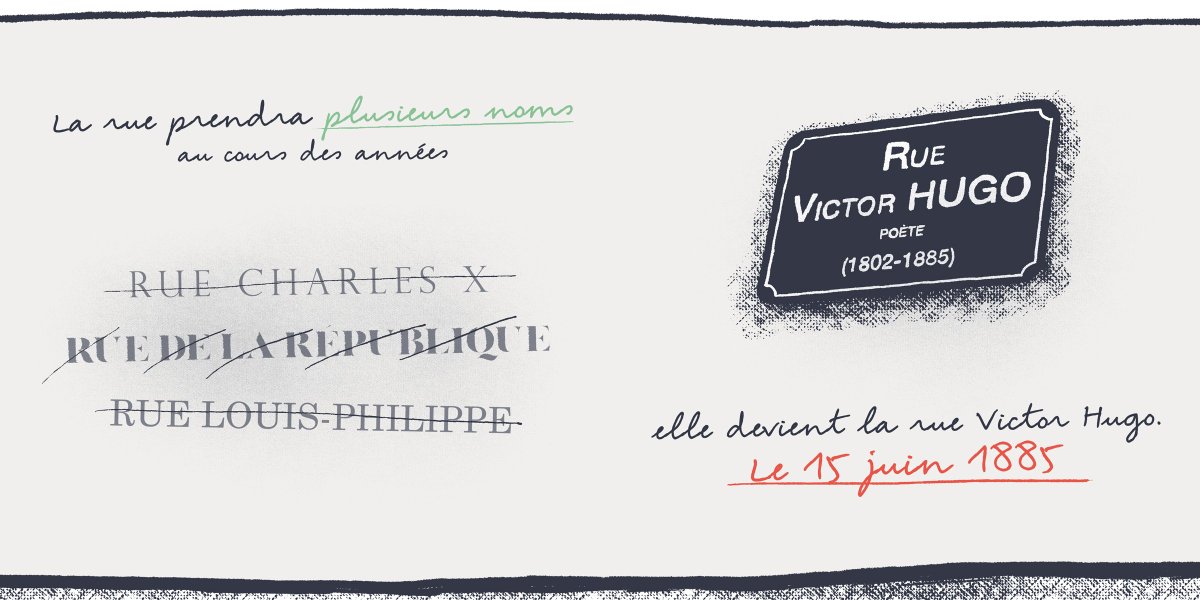 La rue prendra plusieurs noms
au cours des années
RUE CHARLES X
RUE DE LA RÉPUBLIQUE
RUE LOUIS-PHILIPPE
RUE
VICTOR HUGO
POÈTE
(1802-1885)
elle devient la rue Victor Hugo.
Le 15 juin 1885